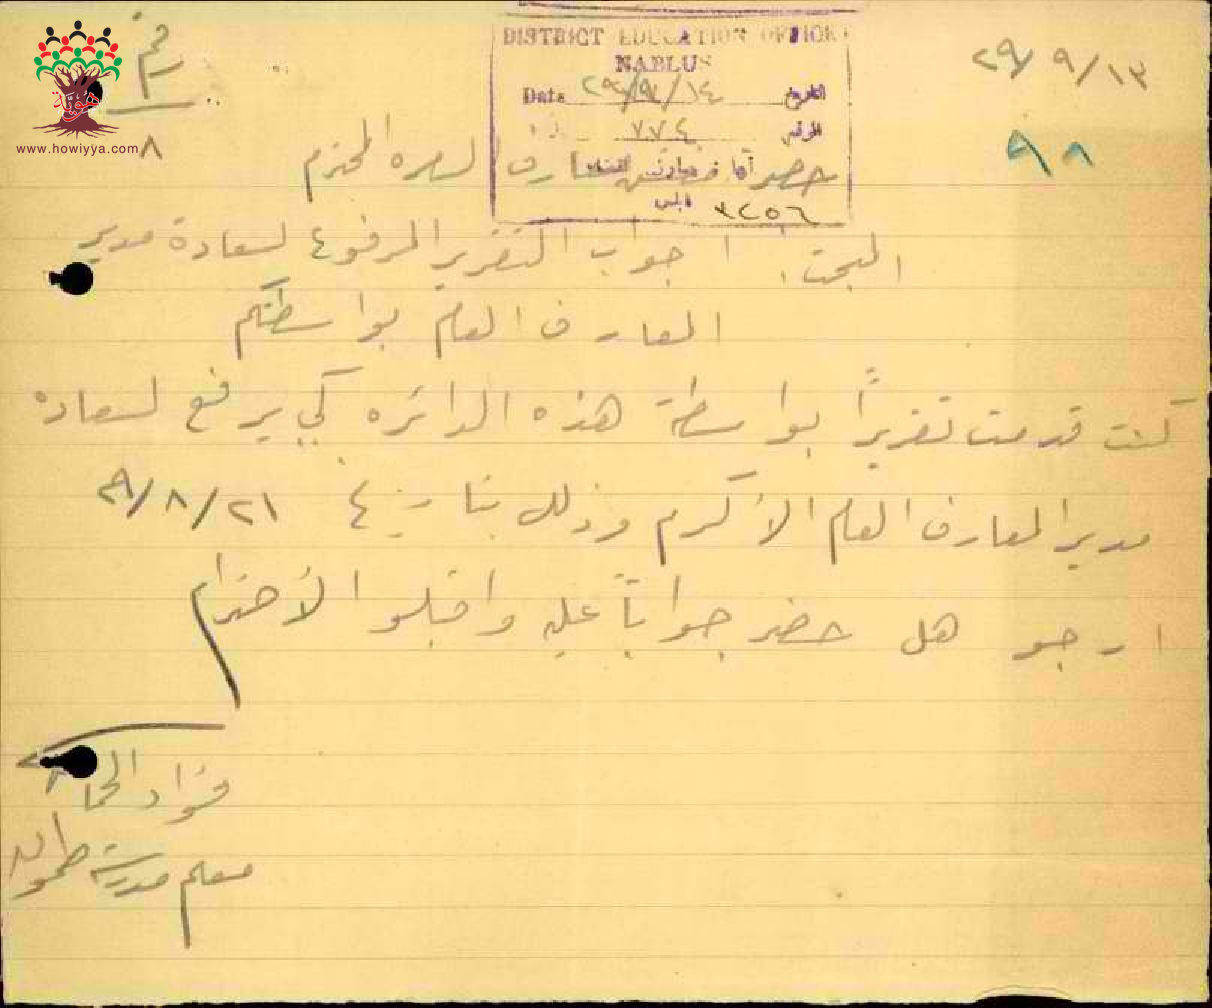 DISTRICT EDUCATION OFFICE
NABLUS
Date ٢٩/٩/١٤ التاريخ
الرقم ٧٧٤
٣٤٥٦
٢٩/٩/١٣
رقم
٨
٩٨
www.howiyya.com
هوية
حضرة مفتش معارف المحترم
المبحث: جواب التقرير المرفوع لسعادة مدير
المعارف العام بواسطتكم
كنت قدمت تقريراً بواسطة هذه الدائره كي يرفع لسعادة
مدير المعارف العام الأكرم وذلك بتاريخ ٢٩/٨/٢١
ارجو هل حضر جواباً عليه واقبلوا الأحترام
فؤاد
معلم مدرسة طمون